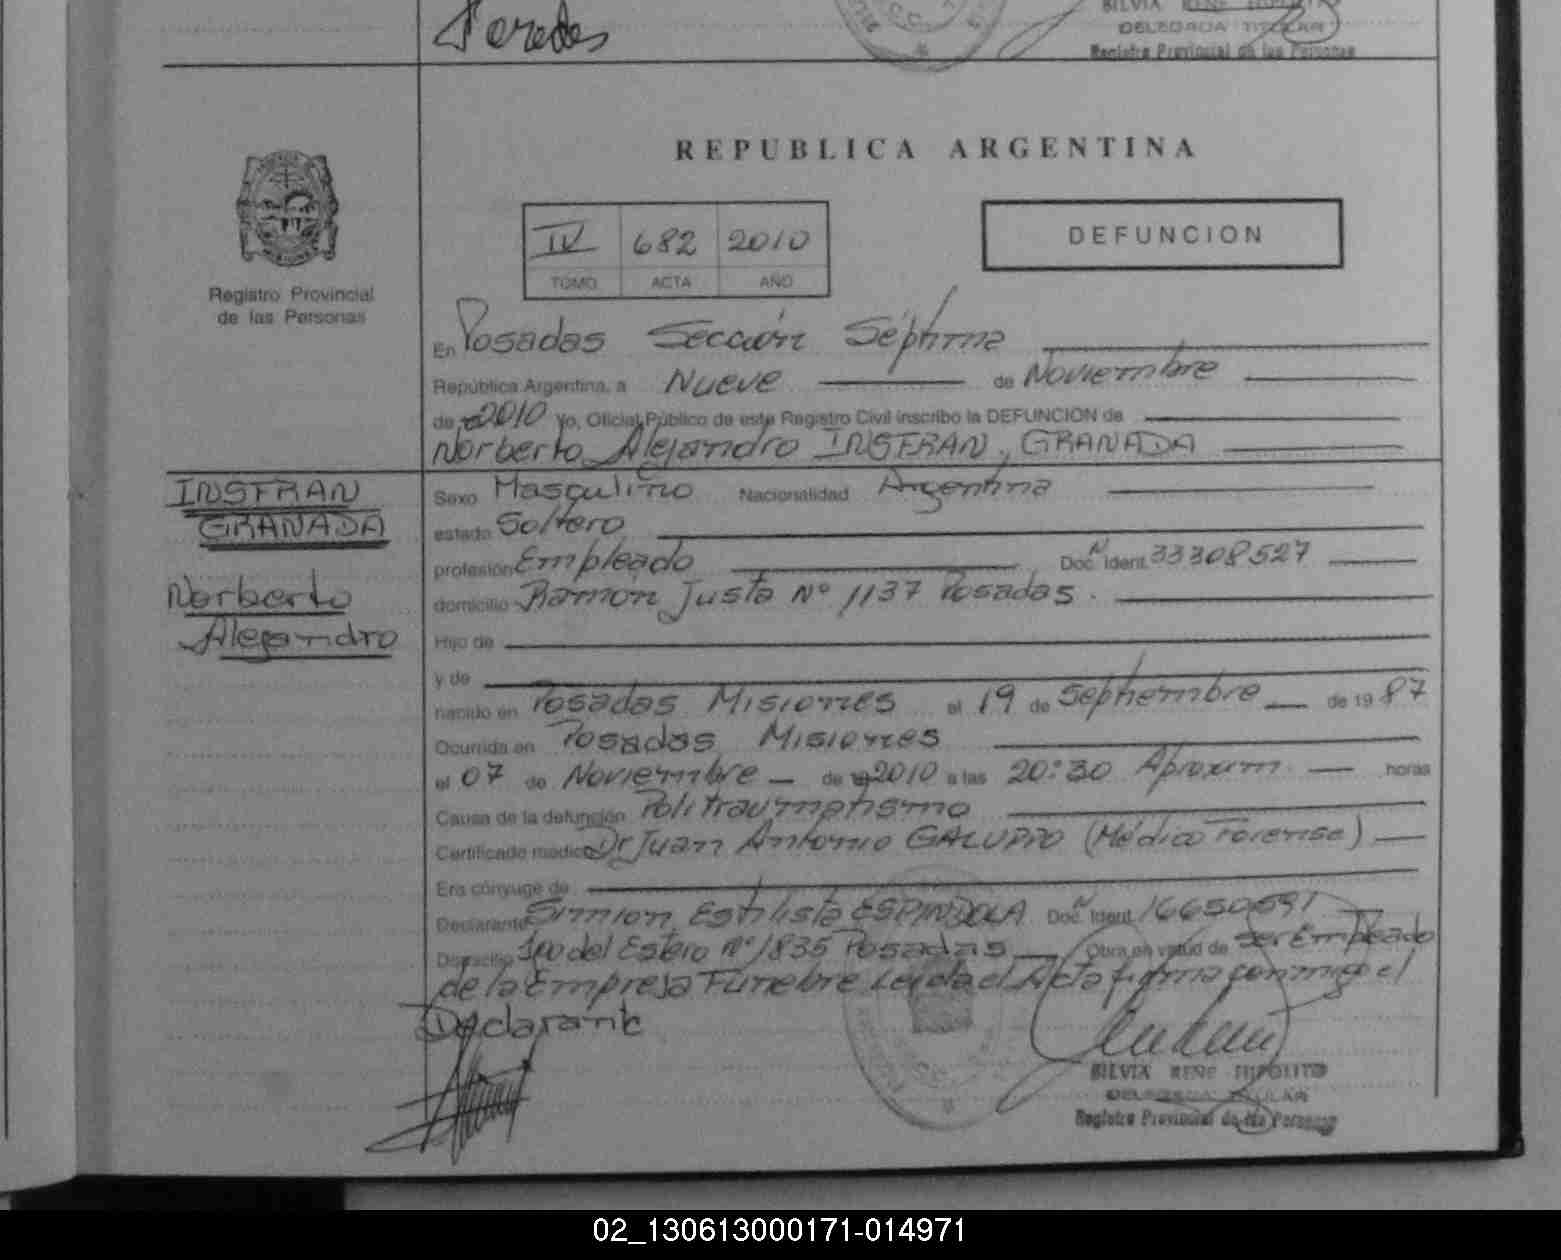 Paredes
SILVIA RENE HIPOLITO
DELEGADA TITULAR
Registro Provincial de las Personas
REPUBLICA ARGENTINA
IV 682 2010
TOMO ACTA AÑO
DEFUNCION
Registro Provincial
de las Personas
En Posadas Sección Séptima
República Argentina, a Nueve de Noviembre
de 2010 Yo, Oficial Público de este Registro Civil inscribo la DEFUNCION de
Norberto Alejandro INSFRAN, GRANADA
INSFRAN
GRANADA
Norberto
Alejandro
Sexo Masculino Nacionalidad Argentina
estado Soltero
profesión Empleado Doc. N Ident. 33308527
domicilio Ramón Justa Nº 1137 Posadas.
Hijo de
y de
nacido en Posadas Misiones el 19 de Septiembre de 1987
Ocurrida en Posadas Misiones
el 07 de Noviembre de 2010 a las 20:30 Aproxim. horas
Causa de la defunción Politraumatismo
Certificado médico Dr Juan Antonio GALUPPO (Médico Forense)
Era cónyuge de
Declarante Simion, Estilista ESPINDOLA Doc. N Ident. 16650591
Domicilio Sgo del Estero Nº 1835 Posadas Obra en virtud de ser Empleado
de la Empresa Funebre Leída el Acta firma conmigo el
Declarante
SILVIA RENE HIPOLITO
DELEGADA TITULAR
Registro Provincial de las Personas
02_130613000171-014971